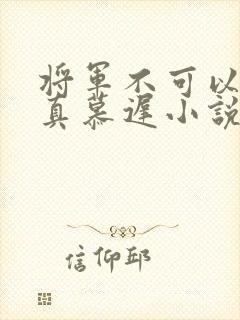 将军不可以
真慕遲小説
信仰邱